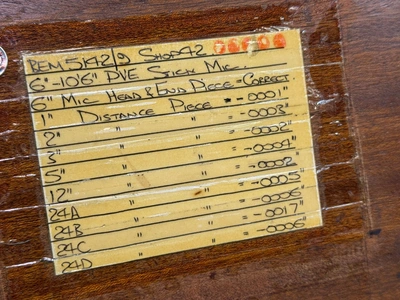 BEM 5142/9 SHOP 42
6"-10'6" PVE STICK MIC.
6" MIC HEAD & END PIECE - CORRECT
1" DISTANCE PIECE -- .0001"
2" " " = -.0003"
3" " " = -.0002"
5" " " = -.0004"
12" " " = -.0002"
24A " " = -.0005"
24B " " = -.0006"
24C " " = -.0017"
24D " " = -.0006"